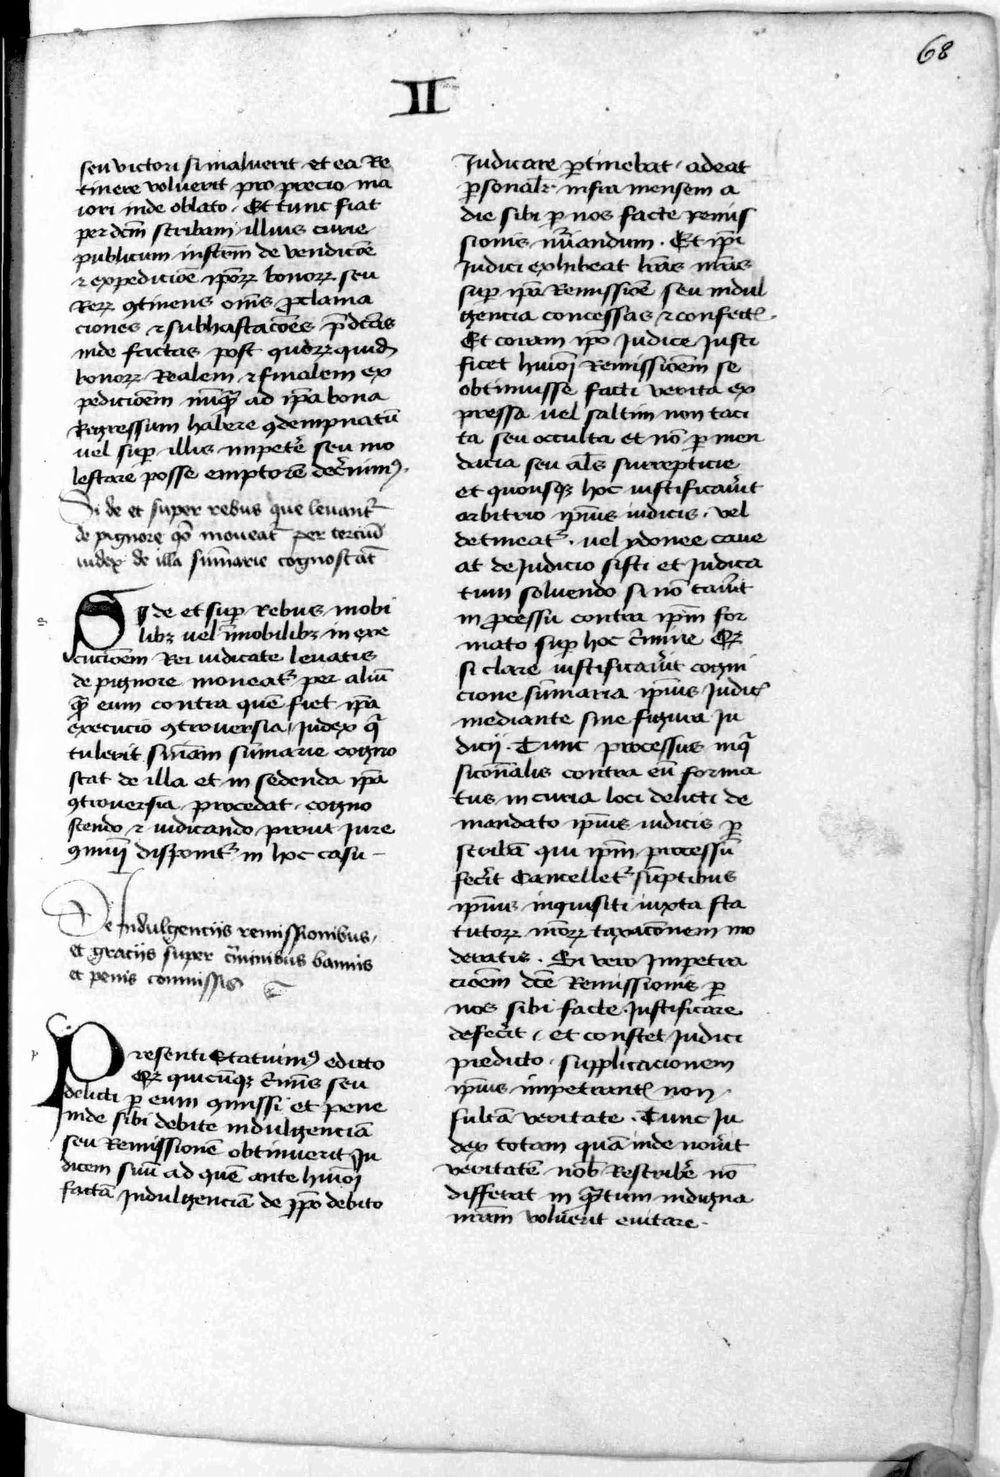 68
II
seu victori si maluerit et ea Re
tinere voluerit pro precio ma
iori inde oblato. Et tunc fiat
per dcm̄ scribam illius curie
publicum instrm̄ de vendicōe
⁊ expedicōe ip̄oꝝ bonoꝝ seu
Reꝝ ꝯtinens oīns ꝓclama
ciones ⁊ subhastacōes p̄dcās
inde factas post
bonoꝝ Realem ⁊ finalem ex
pedicioēm nūꝗ ad ip̄a bona
Regressum habere ꝯdempnatū
vel suꝑ illis impetē seu mo
lestare posse emptorē dec̄nimꝰ.
Si de et super rebus que levant᷑
de pignore qō moveat᷑ per terciū
iudex de illa sum̄arie cognoscat
Si de et suꝑ Rebus mobi
libꝫ vel īmobilibꝫ in exe
cucioēm Rei iudicate levatis
de pignore moveat᷑ per aliū
ꝗ̄ eum contra quē fiet ip̄a
execucio ꝯtroversia Judex ꝗ
tulerit sn̄iam sum̄arie cogno
scat de illa et in sedenda ip̄a
ꝯtroversia procedat cogno
scendo ⁊ iudicando prout Jure
ꝯmuni disponit᷑ in hoc casu
De Indulgenciis remissionibus
et graciis super c̄iminibus bannis
et penis commissis
Presenti Statuimꝰ edicto
Qꝫ quicūqꝫ c̄imīs seu
delicti ꝑ eum ꝯmissi et pene
inde sibi debite indulgenciā
seu Remissionē obtinuerit Ju
dicem suū ad quē ante huiōi
factā Indulgenciā de ip̄o debito
Iudicare ꝑtinebat adeat
ꝑsonalr̄ infra mensem a
die sibi ꝑ nos facte remis
sionis nūiandum. Et ip̄i
Judici exhibeat lrās nrās
suꝑ ip̄a Remissiōe seu indul
gencia concessas ⁊ confect.
Et coram ip̄o Judice Justi
ficet huiōi Remissioēm se
obtinuisse facti verita ex
pressa vel saltim non taci
ta seu occulta et nō ꝑ men
dacia seu al̄s surrepticie
et quousqꝫ hoc iustificav̄it
arbitrio ip̄ius iudicis. vel
detineat᷑. vel ydonee cave
at de Judicio sisti et Judica
tum solvendo si nō cav̄it
in ꝓcessu contra ip̄m for
mato suꝑ hoc c̄imine Qꝫ
si clare iustificav̄it cogni
cione sum̄aria ip̄ius Judic̄
mediante sine figura Ju
dicij. Tunc processus inꝗ
sicōnalis contra eū forma
tus in curia loci delicti de
mandato ip̄ius iudicis ꝑ
scribā qui ip̄m processū
fec̄it Cancellet᷑ sūptibus
ip̄ius inquisiti iuxta sta
tutoꝝ nr̄oꝝ taxacōnem mo
deratis. En vero Impetra
cioēm dcē Remissionis ꝑ
nos sibi facte Justificare
defec̄it, et constet Judici
predicto supplicacionem
ip̄ius impetrant᷑ non
fultā veritate. Tunc Ju
dex totam quā inde nov̄it
veritatē nob̄ Rescribē nō
differat in ꝗ̄tum indigna
cōem nrām voluerit evitare.